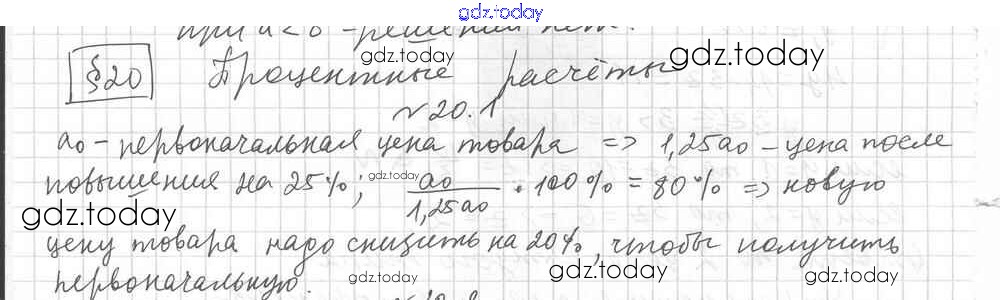 gdz.today
при a<0 - решений нет.
gdz.today
§20 Процентные расчёты
gdz.today
№20.1
a₀ - первоначальная цена товара => 1,25a₀ - цена после
повышения на 25%; a₀/1,25a₀ · 100% = 80% => новую
gdz.today
цену товара надо снизить на 20%, чтобы получить
первоначальную.
gdz.today
gdz.today
gdz.today